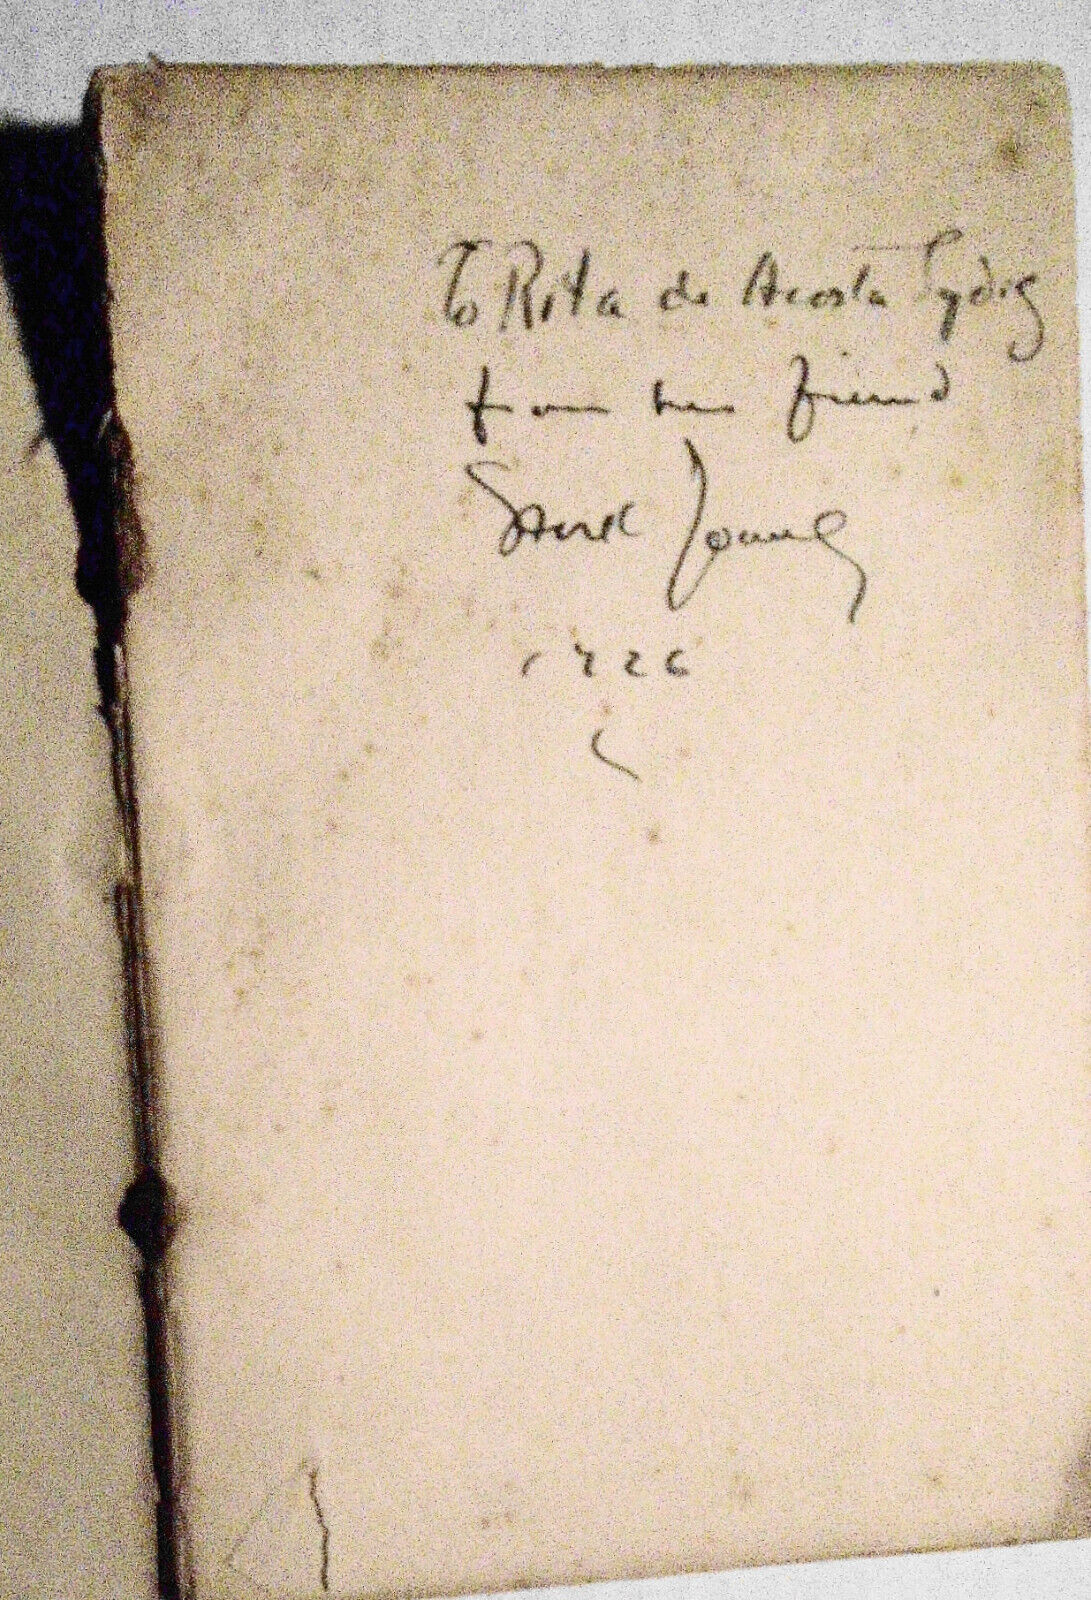 To Rita de Acosta Lydig
from her friend
Stark Young
1926